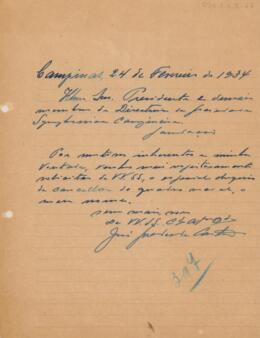 Campinas, 24 de Fevereiro de 1934
Illmo Snr. Presidente e demais
membros da Directoria da Sociedade
Symphonica Campineira
Saudações
Por motivos inherentes a minha
vontade, venho mui respeitosamente
solicitar de VV.SS. o especial
de cancellar do quadro social, o
meu nome.
Sem mais
De VV.SS.
José